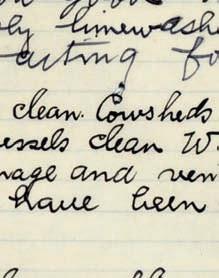 limewashe
acting fo
clean. Cowsheds
essels clean W
nage and ven
have been